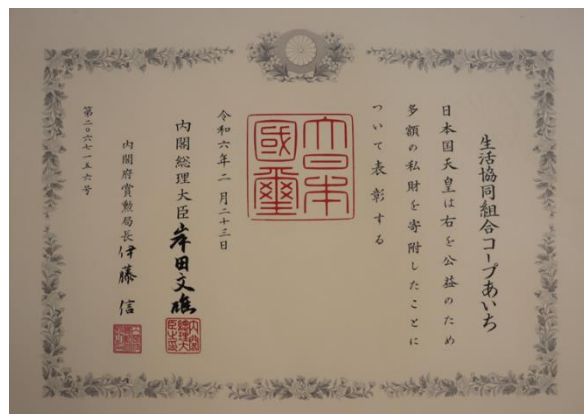 生活協同組合コープあいち
日本国天皇は右を公益のため
多額の私財を寄附したことに
ついて表彰する
大日本
國璽
令和六年二月二十三日
内閣総理大臣 岸田文雄
内閣総理大臣之印
内閣府賞勲局長 伊藤信
第二〇六七一五六号